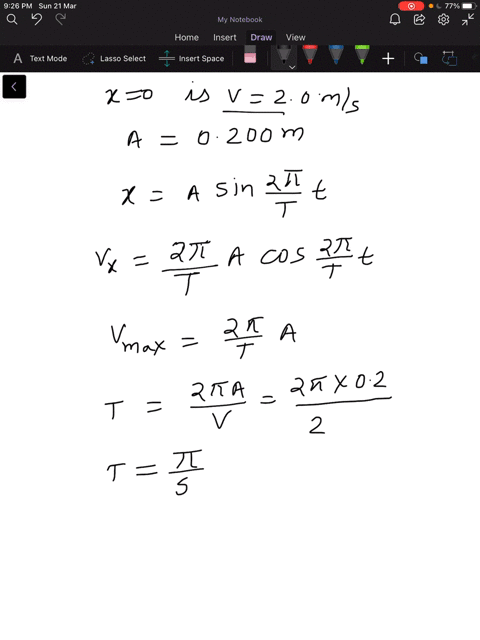 9:26 PM Sun 21 Mar
77%
My Notebook
Home Insert Draw View
Text Mode Lasso Select Insert Space
x=0 is V = 2.0 m/s
A = 0.200 m
x = A sin 2π/T t
Vx = 2π/T A cos 2π/T t
Vmax = 2π/T A
T = 2πA/V = 2π×0.2/2
T = π/5